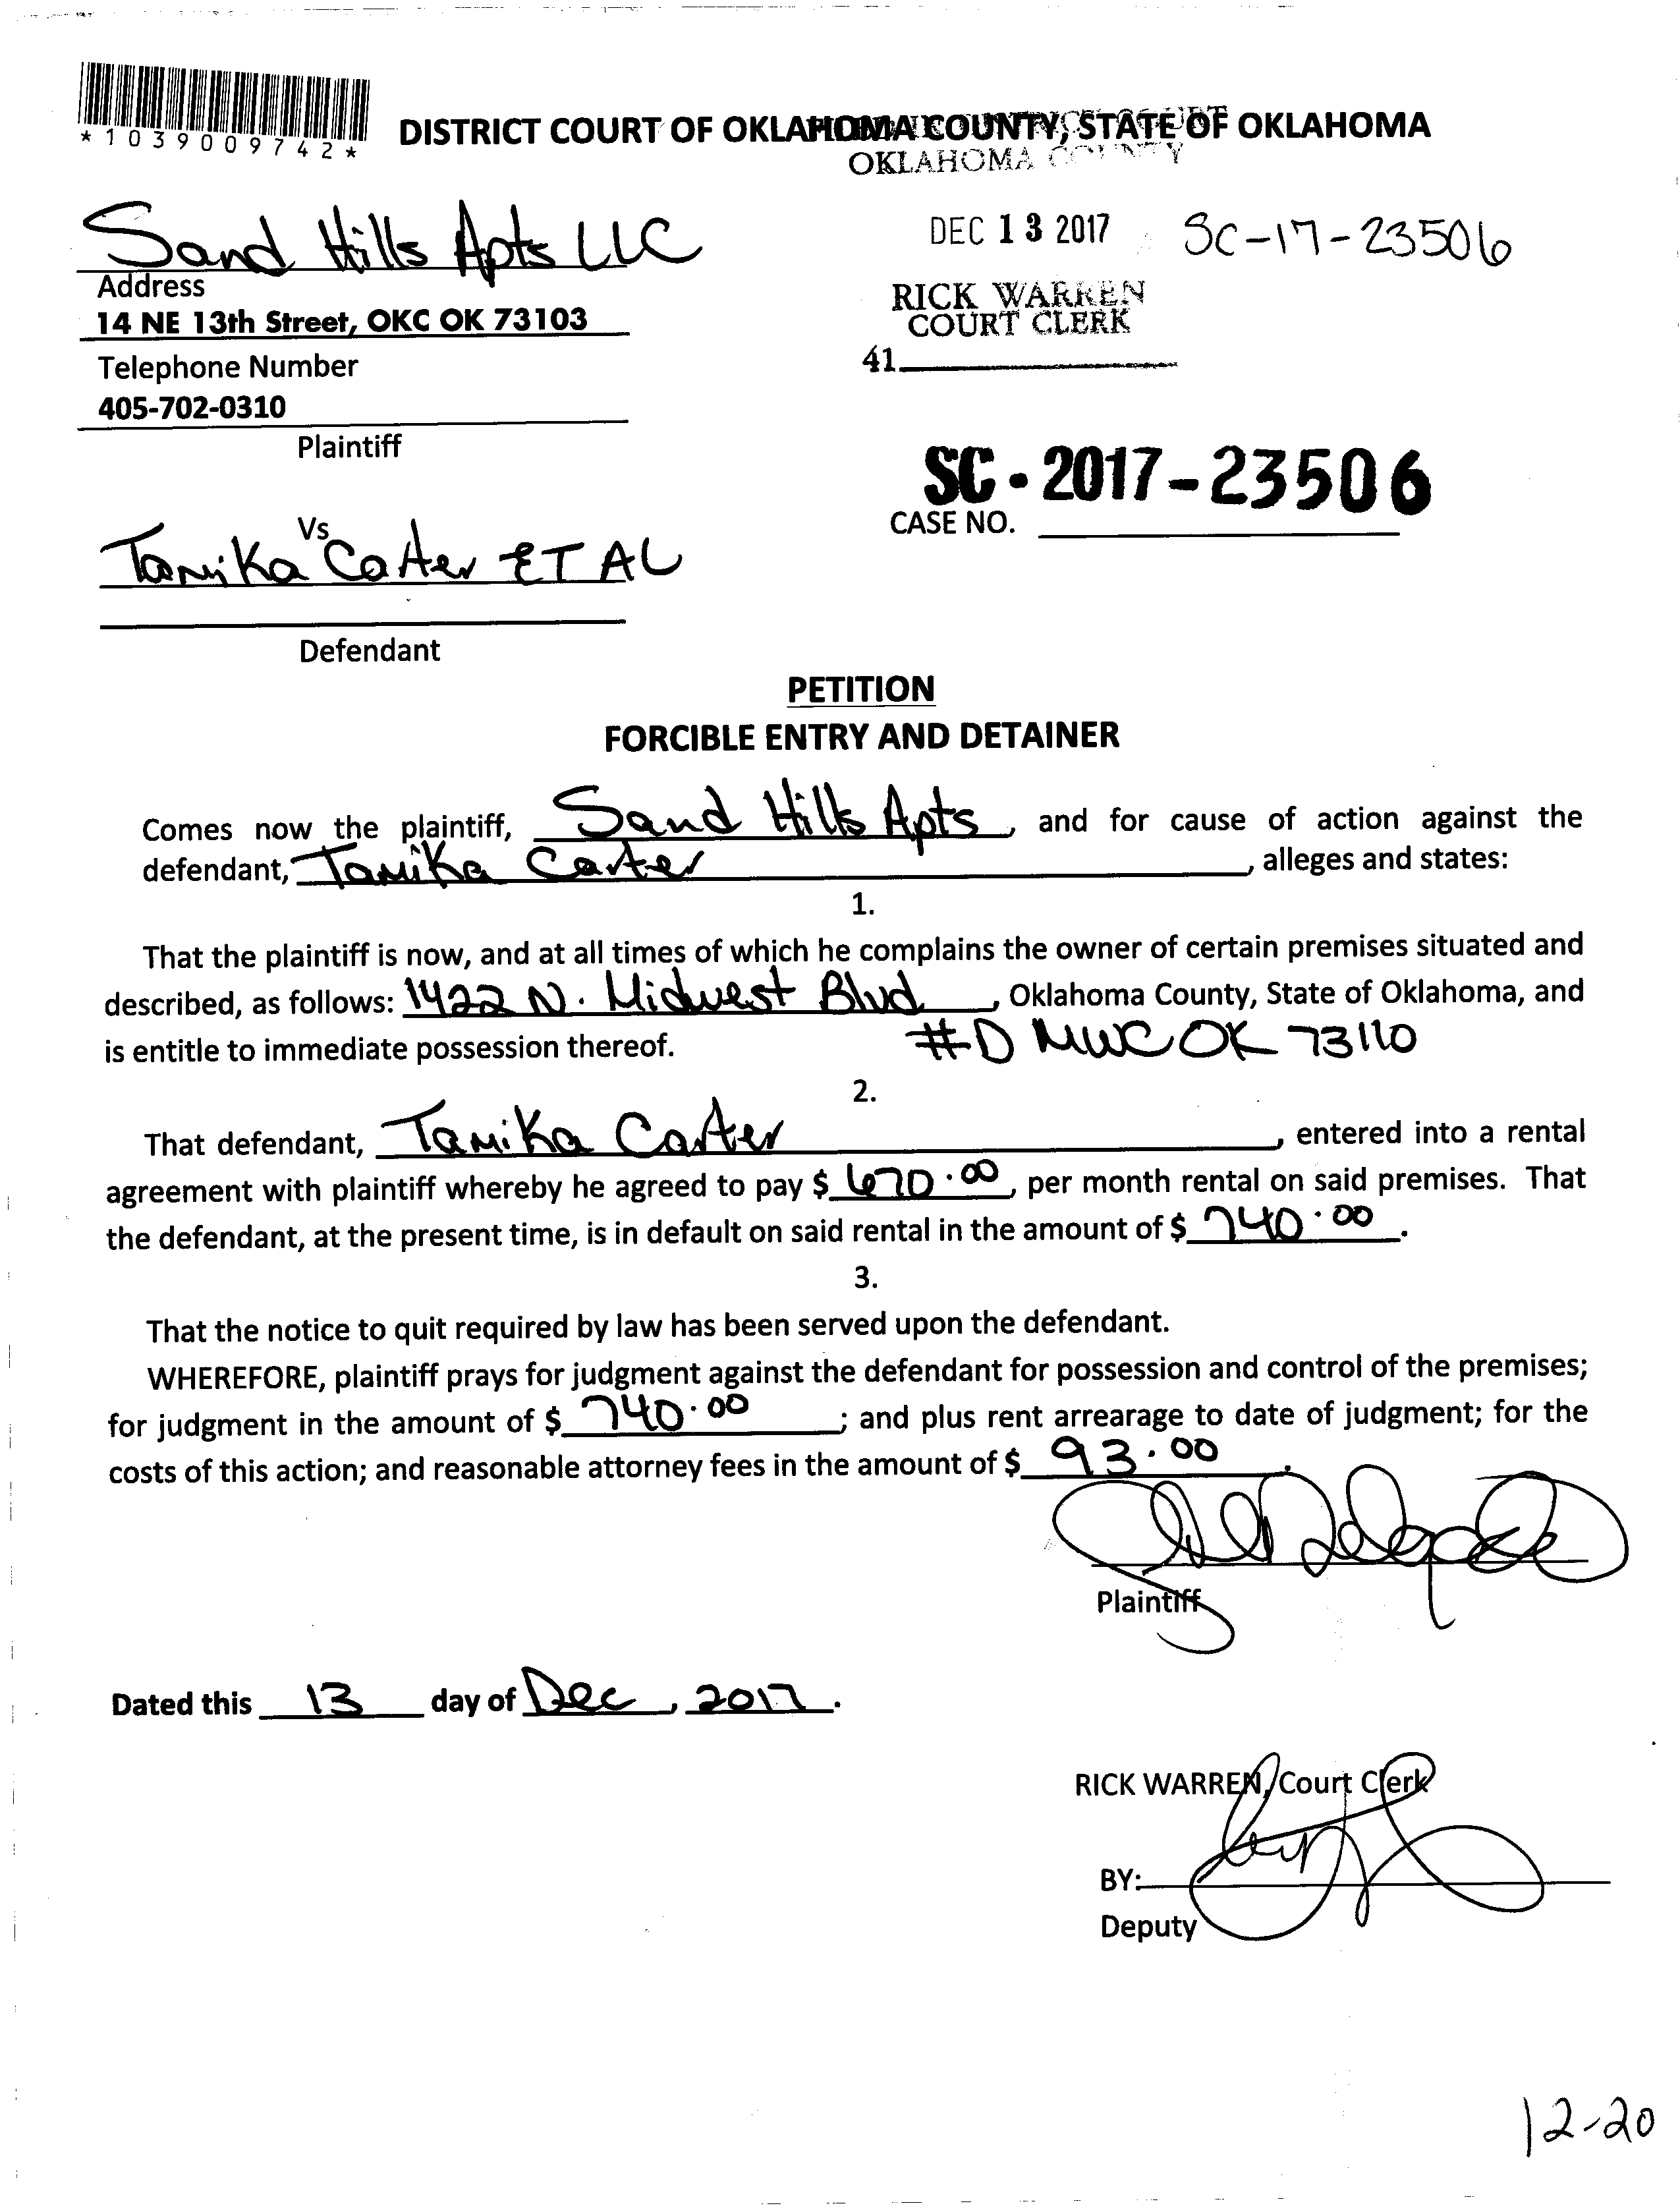 *1039009742*
DISTRICT COURT OF OKLAHOMA COUNTY, STATE OF OKLAHOMA
OKLAHOMA COUNTY
Sand Hills Apts LLC
DEC 13 2017 SC-17-23506
Address
14 NE 13th Street, OKC OK 73103
RICK WARREN
COURT CLERK
Telephone Number
41
405-702-0310
Plaintiff
SC-2017-23506
CASE NO.
Vs
Tamika Carter ET AL
Defendant
PETITION
FORCIBLE ENTRY AND DETAINER
Comes now the plaintiff, Sand Hills Apts, and for cause of action against the
defendant, Tamika Carter, alleges and states:
1.
That the plaintiff is now, and at all times of which he complains the owner of certain premises situated and
described, as follows: 1422 N. Midwest Blvd, Oklahoma County, State of Oklahoma, and
is entitle to immediate possession thereof. #D MWC OK 73110
2.
That defendant, Tamika Carter, entered into a rental
agreement with plaintiff whereby he agreed to pay $ 670.00, per month rental on said premises. That
the defendant, at the present time, is in default on said rental in the amount of $ 740.00.
3.
That the notice to quit required by law has been served upon the defendant.
WHEREFORE, plaintiff prays for judgment against the defendant for possession and control of the premises;
for judgment in the amount of $ 740.00; and plus rent arrearage to date of judgment; for the
costs of this action; and reasonable attorney fees in the amount of $ 93.00.
Plaintiff
Dated this 13 day of Dec, 2017.
RICK WARREN, Court Clerk
BY:
Deputy
12-20